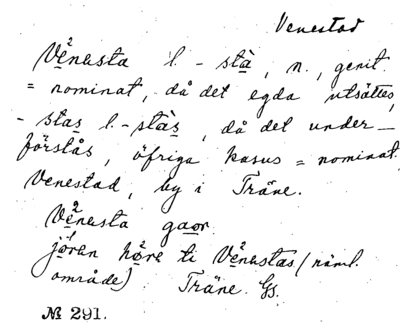 Venestad
Vênasta l. -stà, n., genit.
= nominat., då det egda utsättes,
- stas l. -stàs, då det under-
förstås, öfriga kasus = nominat.
Venestad, by i Träne.
Vênasta gaor.
jöran höre ti Vênastas (näml.
område) Träne. Gs.
№ 291.